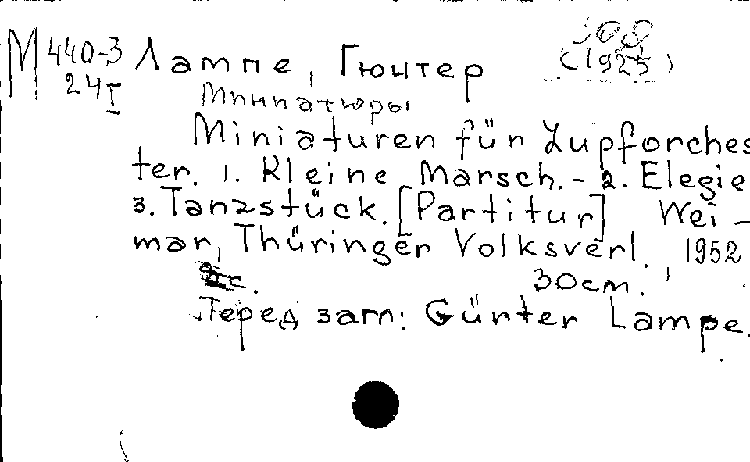 М 440-3 Лампе, Гюнтер
24 I (1925)
Миниатюры
Miniaturen für Zupforches
ter. 1. Kleine Marsch. - 2. Elegie
3. Tanzstück. [Partitur] Wei-
mar, Thüringer Volksverl., 1952
30cm.
Перед загл: Günter Lampe.